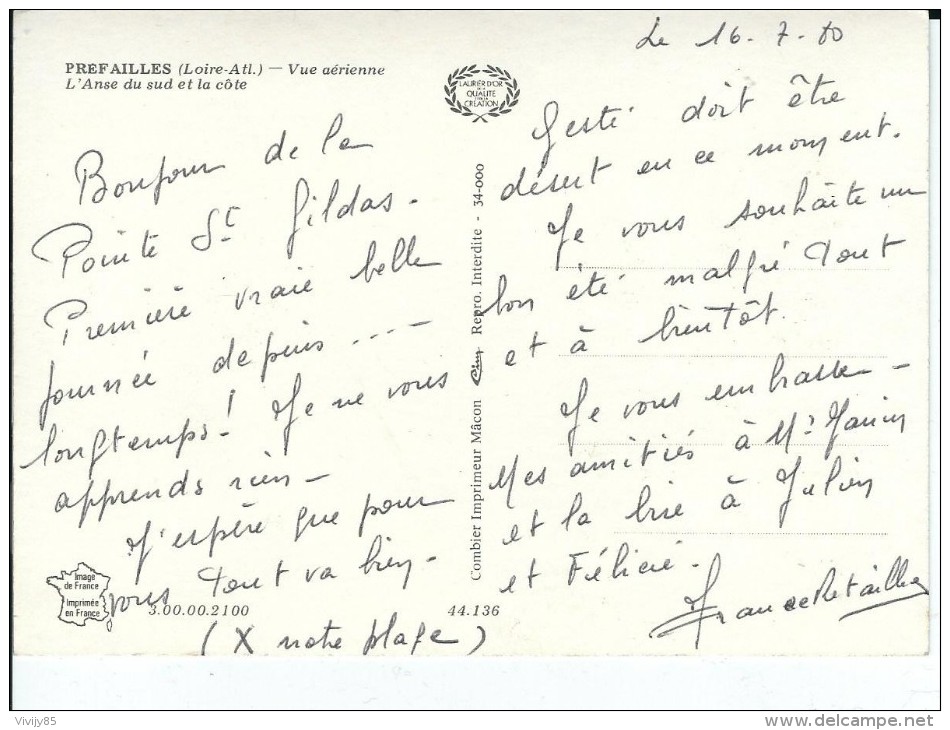 PREFAILLES (Loire-Atl.) — Vue aérienne
L'Anse du sud et la côte
Bonjour de la
Pointe St Gildas.
Première vraie belle
journée depuis ...
longtemps! Je ne vous
apprends rien -
J'espère que pour
vous tout va bien -
(X notre plage)
Image
de France
Imprimée
en France
3.00.00.2100
44.136
LAURIER D'OR
DE LA
QUALITÉ
CRÉATION
Combier Imprimeur Mâcon Cim Repro. Interdite - 34-000
Le 16-7-80
Gesté doit être
désert en ce moment.
Je vous souhaite un
bon été malgré tout
et à bientôt.
Je vous embrasse -
Mes amitiés à Mr
et la bise à Julien
et Félicie.
France Retailleau
Vivijy85
www.delcampe.net